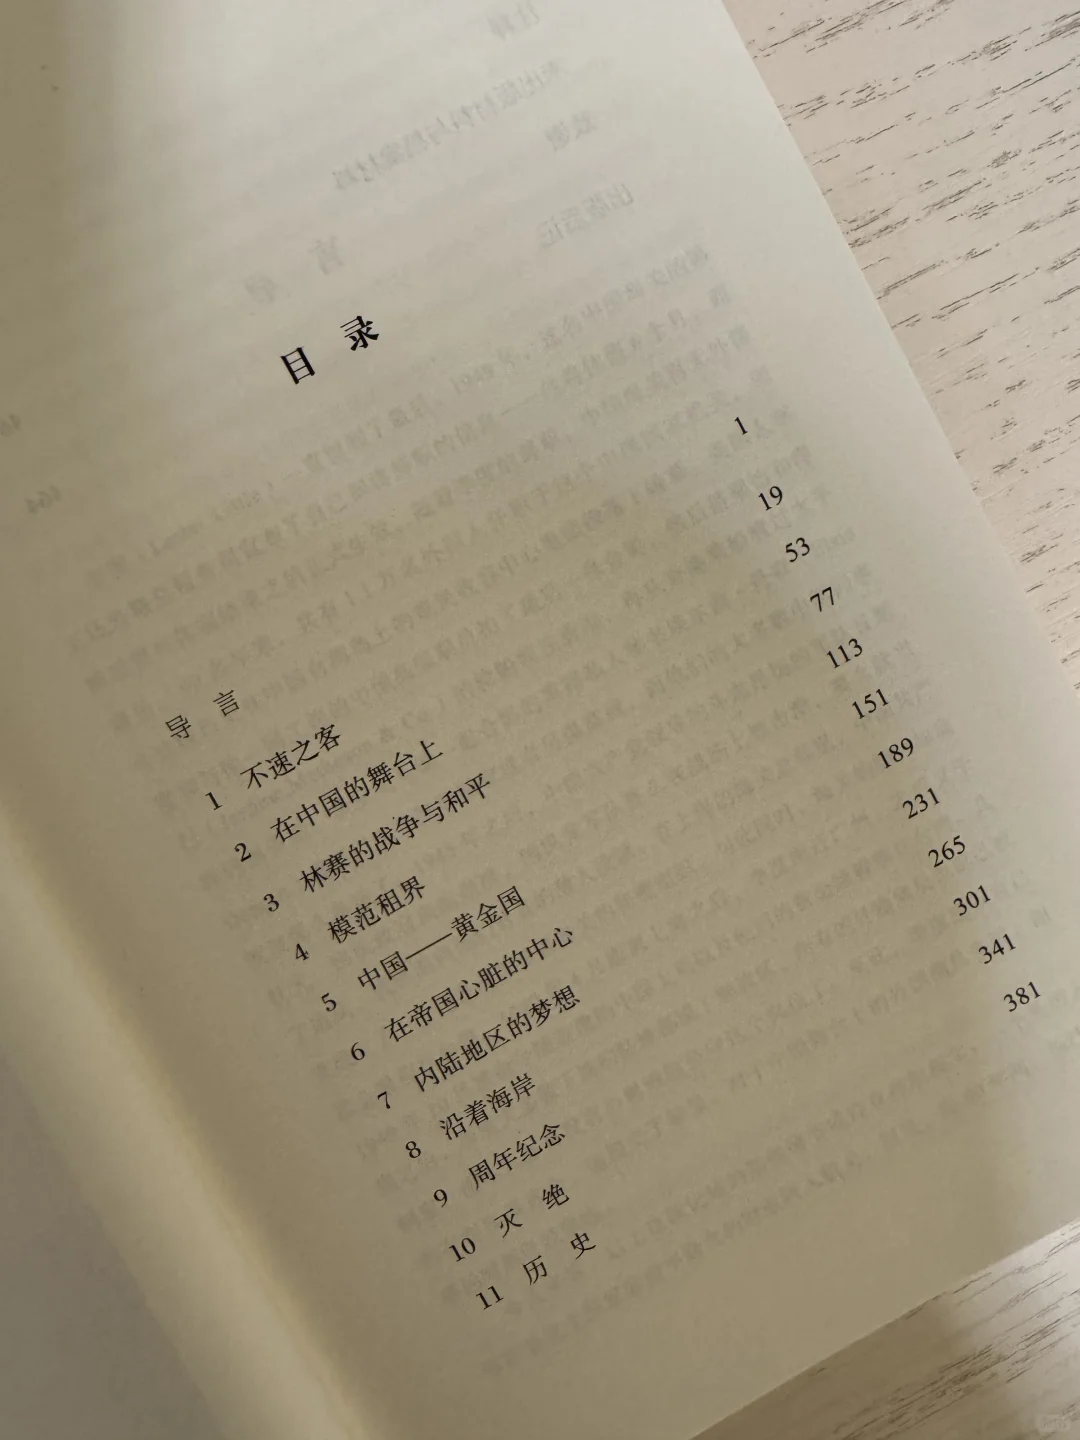 目 录
导 言 1
1 不速之客 19
2 在中国的舞台上 53
3 林赛的战争与和平 77
4 模范租界 113
5 中国——黄金国 151
6 在帝国心脏的中心 189
7 内陆地区的梦想 231
8 沿着海岸 265
9 周年纪念 301
10 灭 绝 341
11 历 史 381